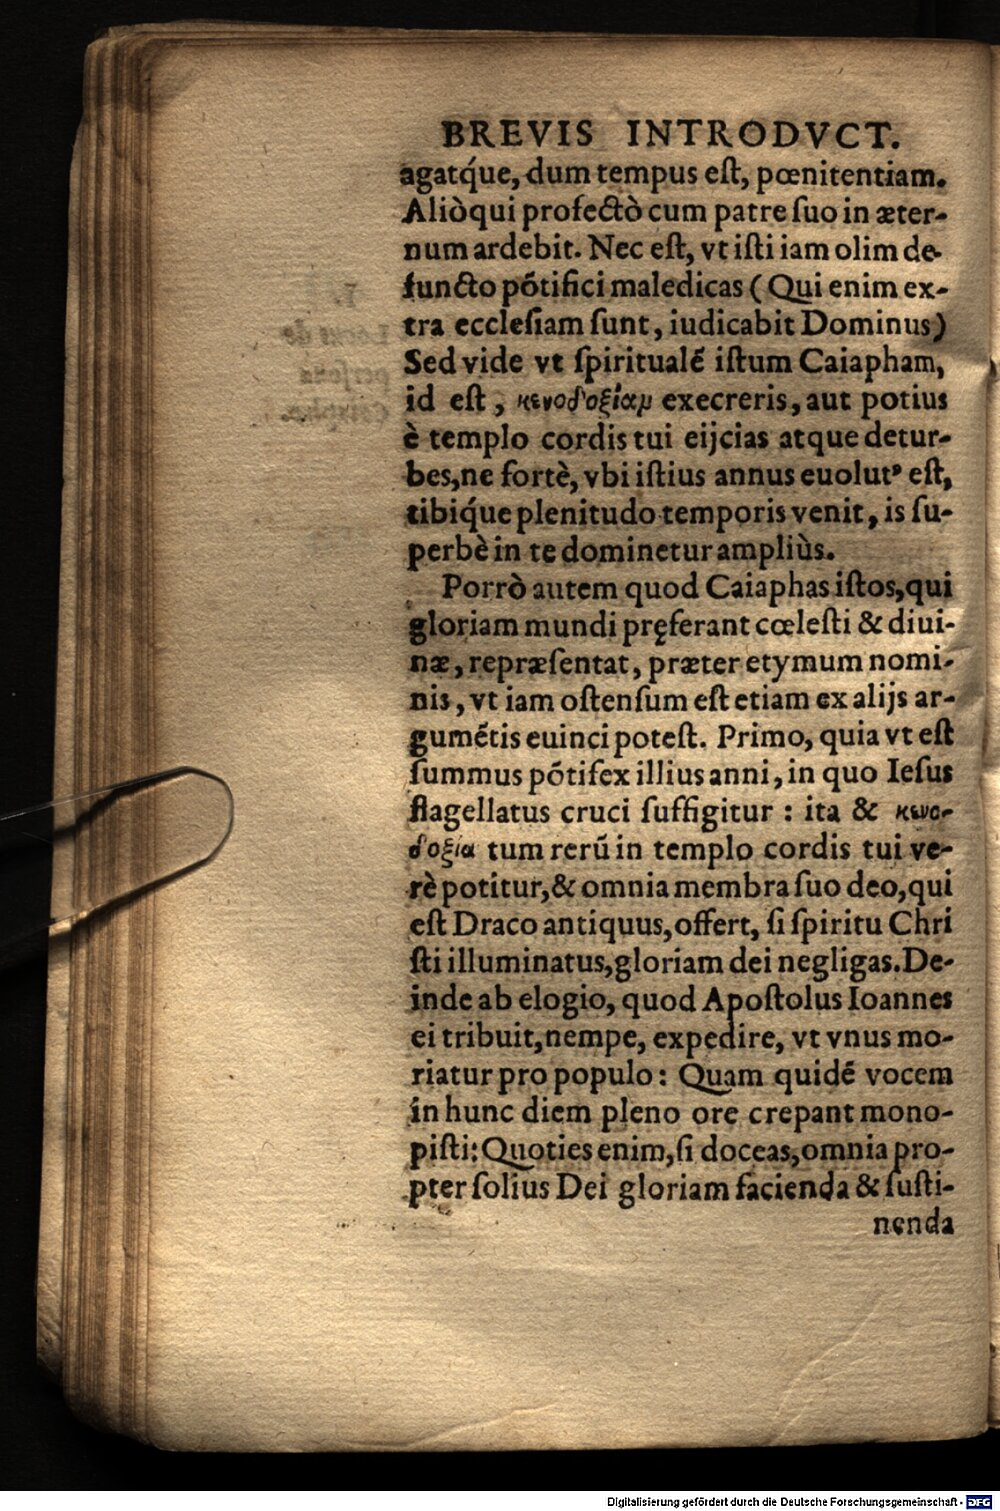 BREVIS INTRODVCT.
agatq́ue, dum tempus eſt, pœnitentiam.
Aliòqui profectò cum patre ſuo in æter-
num ardebit. Nec eſt, vt iſti iam olim de-
functo põtifici maledicas (Qui enim ex-
tra eccleſiam ſunt, iudicabit Dominus)
Sed vide vt ſpiritualẽ iſtum Caiapham,
id eſt, κενοδοξίαμ execreris, aut potius
è templo cordis tui eijcias atque detur-
bes, ne fortè, vbi iſtius annus euolutꝰ eſt,
tibiq́ue plenitudo temporis venit, is ſu-
perbè in te dominetur ampliùs.
Porrò autem quod Caiaphas iſtos, qui
gloriam mundi pręferant cœleſti & diui-
næ, repræſentat, præter etymum nomi-
nis, vt iam oſtenſum eſt etiam ex alijs ar-
gumẽtis euinci poteſt. Primo, quia vt eſt
ſummus põtifex illius anni, in quo Ieſus
flagellatus cruci ſuffigitur: ita & κενο-
δοξία tum rerũ in templo cordis tui ve-
rè potitur, & omnia membra ſuo deo, qui
eſt Draco antiquus, offert, ſi ſpiritu Chri
ſti illuminatus, gloriam dei negligas. De-
inde ab elogio, quod Apoſtolus Ioannes
ei tribuit, nempe, expedire, vt vnus mo-
riatur pro populo: Quam quidẽ vocem
in hunc diem pleno ore crepant mono-
piſti: Quoties enim, ſi doceas, omnia pro-
pter ſolius Dei gloriam facienda & ſuſti-
nenda
Digitalisierung gefördert durch die Deutsche Forschungsgemeinschaft - DFG